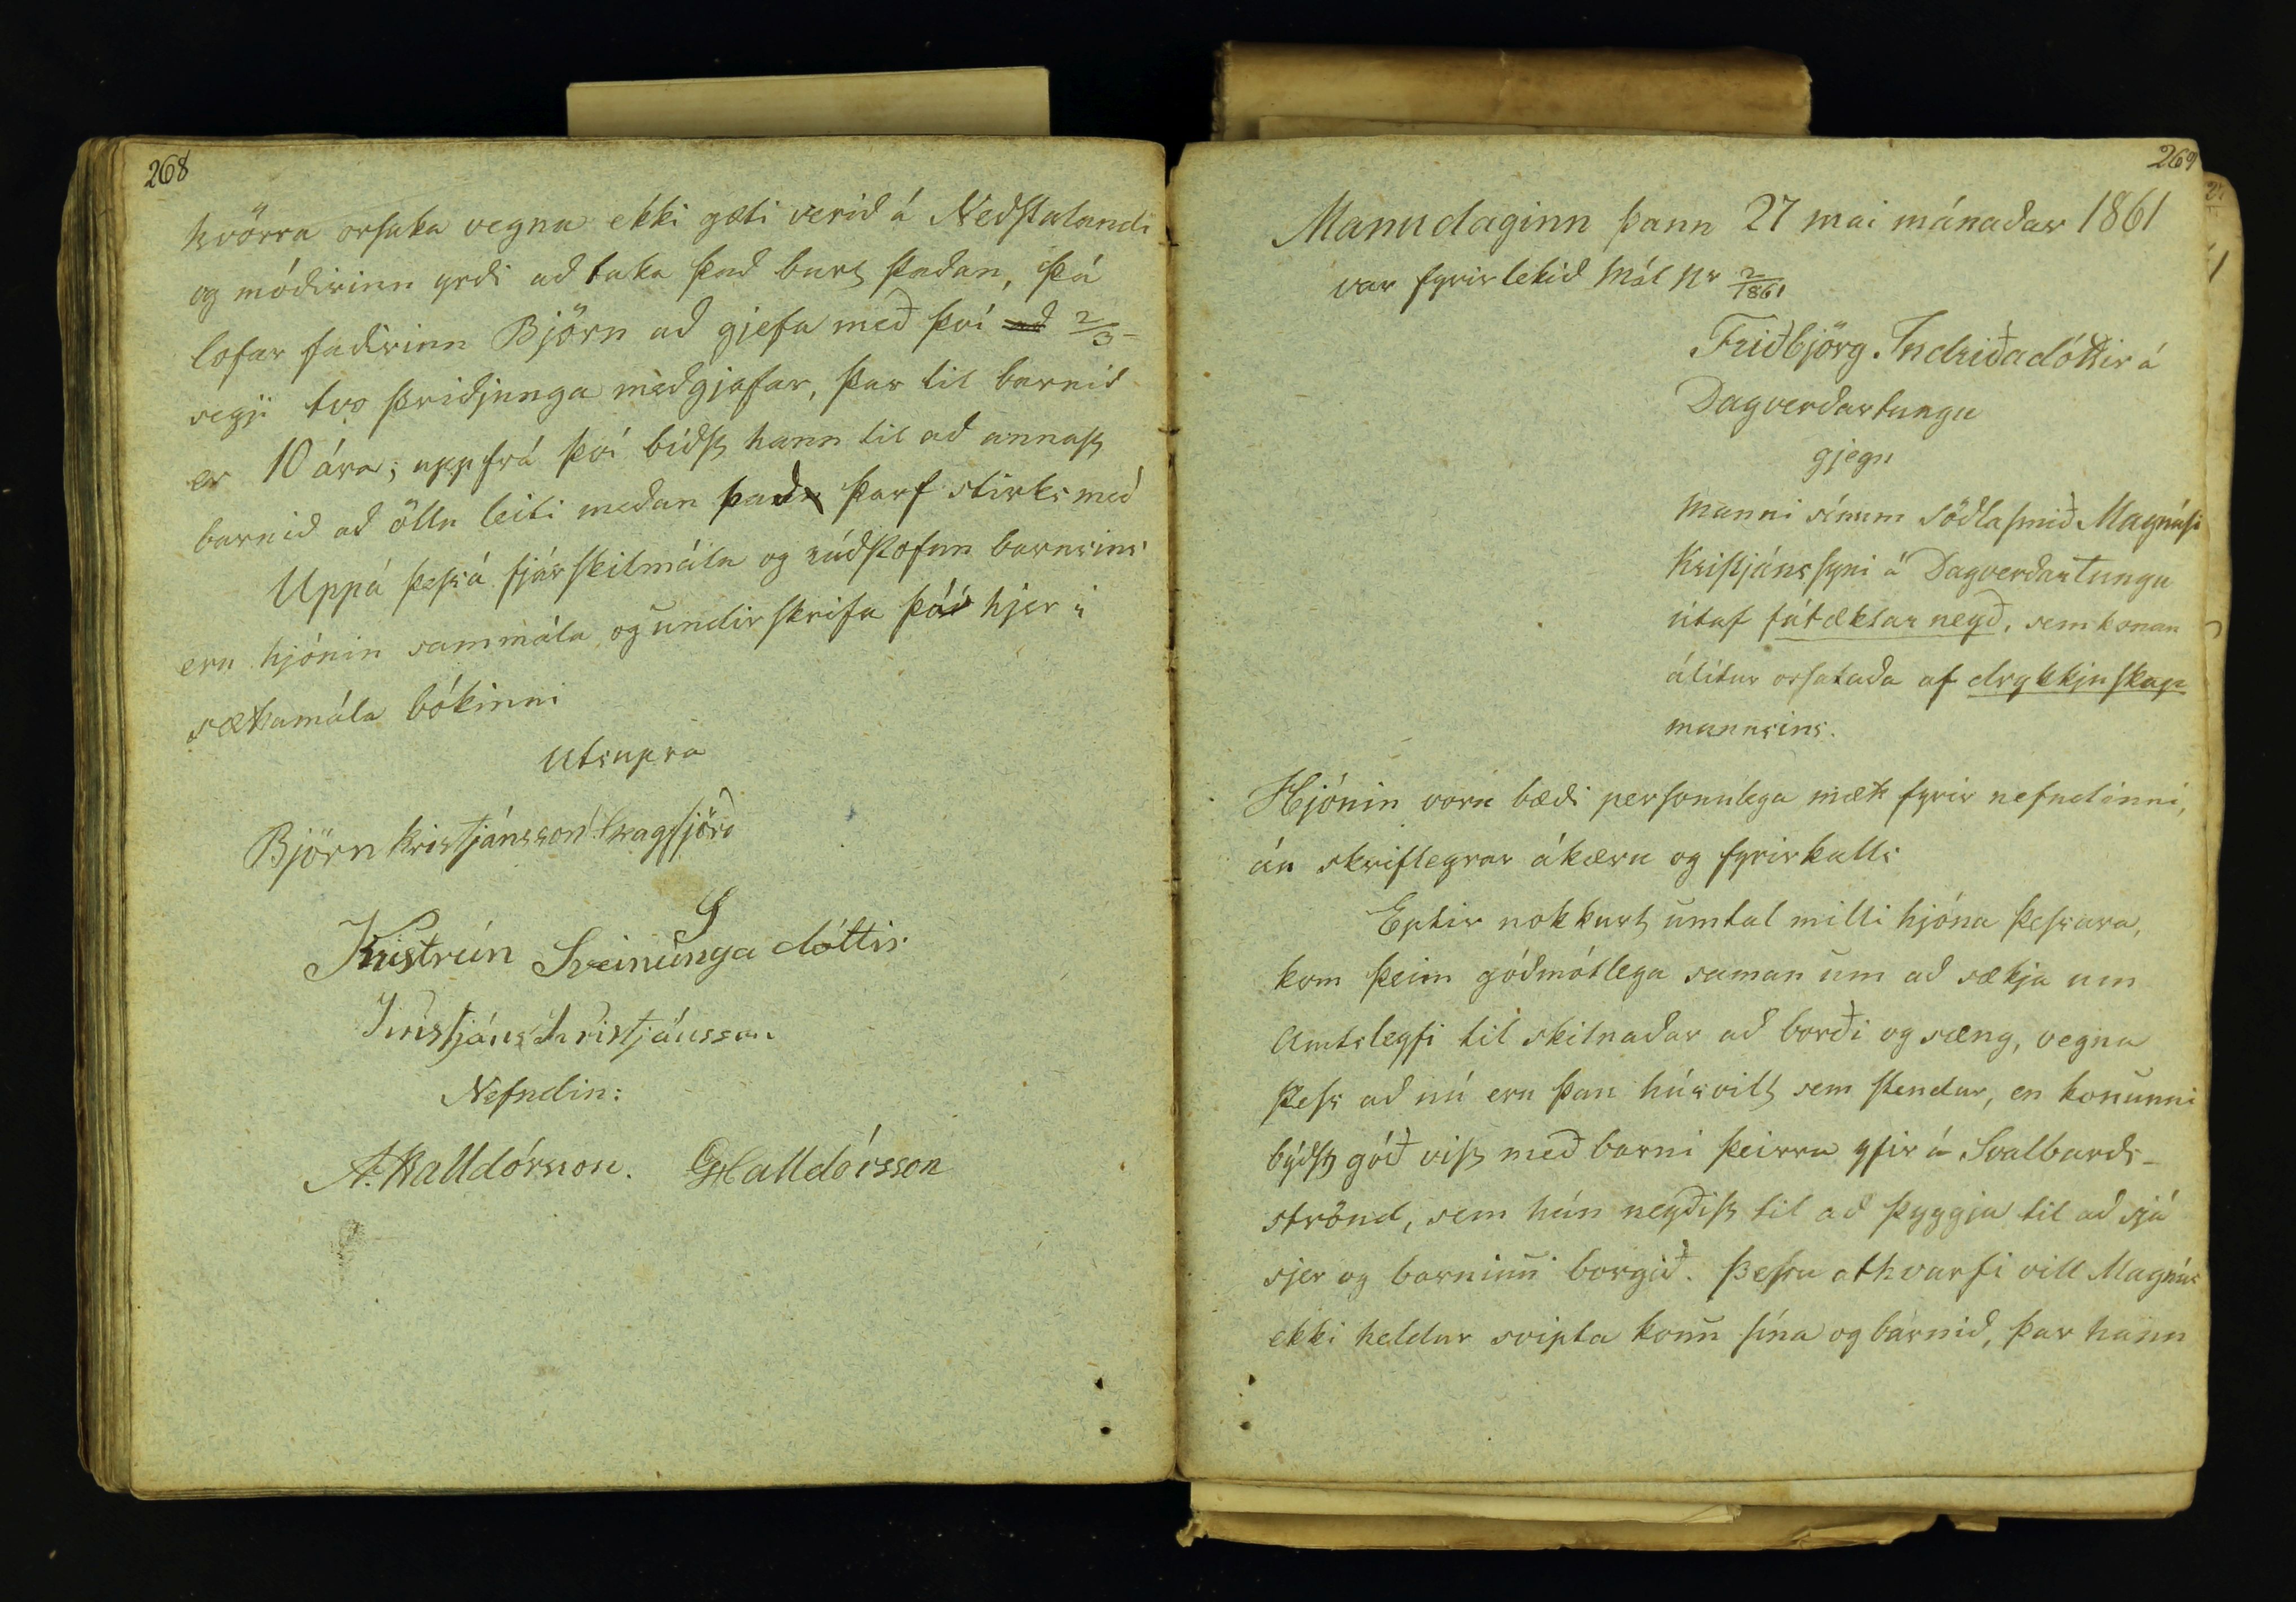 268
hvörra orsaka vegna ekki gæti verið á Neðstalandi
og móðirinn yrði að taka það burt þaðan, þá
lofar faðirinn Björn að gjefa með því að 2/3 -
segji tvo þriðjunga meðgjafar, þar til barnið
er 10 ára; upp frá því bíðst hann til að annast
barnið að öllu leiti meðan það þarf stirks með
Uppá þessá fjárskilmála og ráðstöfun barnsins
eru hjónin sammála og undirskrifa það hjer í
sættamála bókinni
Utsupra
Björn Kristjánsson Skagfjörð
Kristrún Sveinúngadóttir
Kristjáns Kristjánsson
Nefndin:
A. Halldórsson. GHalldórsson
269
Manudaginn þann 27 mai mánaðar 1861
var fyrirtekið Mál Nr 2/1861
Friðbjörg Indriðadóttir á
Dagverðartungu
gjegn
Manni sínum Söðlasmið Magnúsi
Kristjánssyni á Dagverðartungu
útaf fátæktar neyð, sem konan
álítur orsakaða af drykkjuskap
mannsins.
Hjónin voru bæði personulega mætt fyrir nefndinni,
án skriflegrar ákæru og fyrirkalls
Eptir nokkurt úmtal milli hjóna þessara,
kom þeim góðmótlega saman um að sækja um
Amtsleyfi til skilnaðar að borði og sæng, vegna
þess að nú eru þau húsvilt sem stendur, en konunni
býðst góð vist með barni þeirra yfir á Svalbarðs-
strönd, sem hún neyðist til að þyggja til að sjá
sjer og barninu borgið. Þessu athvarfi vill Magnús
ekki heldur svipta konu sína og barnið, þar hann